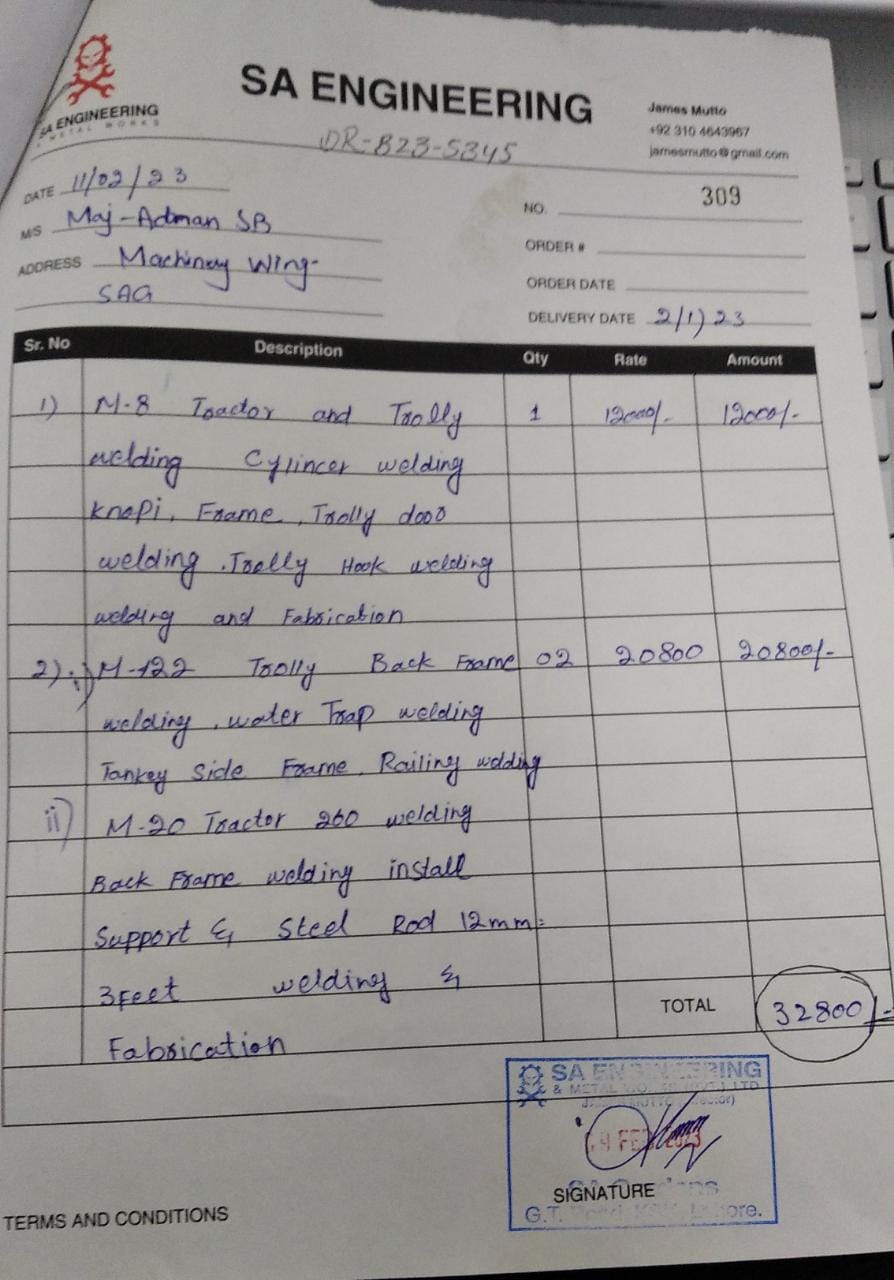 SA ENGINEERING
& METAL WORKS
SA ENGINEERING
James Mutto
+92 310 4643967
jamesmutto@gmail.com
DR-B23-5345
DATE 11/02/23
NO. 309
M/S Maj-Adman SB
ORDER #
ADDRESS Machinery Wing-
SAG
ORDER DATE
DELIVERY DATE 2/1/23
Sr. No Description Qty Rate Amount
1) M-8 Tractor and Trolly 1 12000/- 12000/-
welding Cylincer welding
Knopi, Frame, Trolly door
welding. Trolly Hook welding
welding and Fabrication
2) i) M-122 Trolly Back Frame 02 20800 20800/-
welding, water Trap welding
Tankey Side Frame, Railing welding
ii) M-20 Tractor 260 welding
Back Frame welding install
Support & Steel Rod 12mm=
3Feet welding &
Fabrication
TOTAL 32800/-
SA ENGINEERING
& METAL
FEB 2023
SIGNATURE
G.T. Lahore.
TERMS AND CONDITIONS